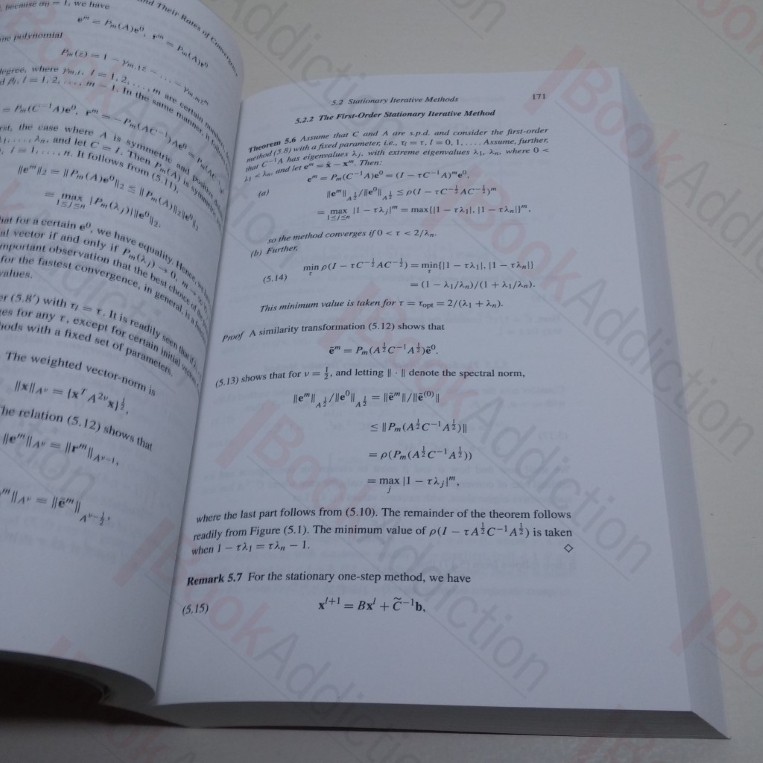 and Their Rates of
, because α₀ = 1, we have
eᵐ = Pₘ(A)e⁰, rᵐ = Pₘ(A)r⁰
polynomial
degree, where
are certain
In the same manner,
the case where A is symmetric and
and let C = I. Then Pₘ(A) is symmetric
i = 1, . . . , n. It follows from (5.11),
‖eᵐ‖₂ = ‖Pₘ(A)e⁰‖₂ ≤ ‖Pₘ(A)‖₂‖e⁰‖₂
= max 1≤j≤n |Pₘ(λⱼ)|‖e⁰‖₂.
hat for a certain e⁰, we have equality. Hence,
al vector if and only if Pₘ(λⱼ) → 0, m →
mportant observation that the best choice of
for the fastest convergence, in general, is a
values.
er (5.8′) with τₗ = τ. It is readily seen that
es for any τ, except for certain initial
hods with a fixed set of parameters
The weighted vector-norm is
‖x‖_{A^ν} = {xᵀA^{2ν}x}^{1/2},
he relation (5.12) shows that
‖eᵐ‖_{A^ν} = ‖rᵐ‖_{A^{ν−1}},
ᵐ‖_{A^ν} = ‖ẽᵐ‖_{A^{ν−1/2}},
5.2 Stationary Iterative Methods 171
5.2.2 The First-Order Stationary Iterative Method
Theorem 5.6 Assume that C and A are s.p.d. and consider the first-order
method (5.8) with a fixed parameter, i.e., τₗ = τ, l = 0, 1, . . . . Assume, further,
that C⁻¹A has eigenvalues λⱼ, with extreme eigenvalues λ₁, λₙ, where 0 <
λ₁ < λₙ, and let eᵐ = x̂ − xᵐ. Then:
eᵐ = Pₘ(C⁻¹A)e⁰ = (I − τC⁻¹A)ᵐe⁰,
(a) ‖eᵐ‖_{A^{1/2}}/‖e⁰‖_{A^{1/2}} ≤ ρ(I − τC^{−1/2}AC^{−1/2})ᵐ
= max 1≤j≤n |1 − τλⱼ|ᵐ = max{|1 − τλ₁|, |1 − τλₙ|}ᵐ,
so the method converges if 0 < τ < 2/λₙ.
(b) Further,
(5.14) min τ ρ(I − τC^{−1/2}AC^{−1/2}) = min τ{|1 − τλ₁|, |1 − τλₙ|}
= (1 − λ₁/λₙ)/(1 + λ₁/λₙ).
This minimum value is taken for τ = τ_opt = 2/(λ₁ + λₙ).
Proof A similarity transformation (5.12) shows that
ẽᵐ = Pₘ(A^{1/2}C⁻¹A^{1/2})ẽ⁰.
(5.13) shows that for ν = 1/2, and letting ‖ · ‖ denote the spectral norm,
‖eᵐ‖_{A^{1/2}}/‖e⁰‖_{A^{1/2}} = ‖ẽᵐ‖/‖ẽ⁽⁰⁾‖
≤ ‖Pₘ(A^{1/2}C⁻¹A^{1/2})‖
= ρ(Pₘ(A^{1/2}C⁻¹A^{1/2}))
= max j |1 − τλⱼ|ᵐ,
where the last part follows from (5.10). The remainder of the theorem follows
readily from Figure (5.1). The minimum value of ρ(I − τA^{1/2}C⁻¹A^{1/2}) is taken
when 1 − τλ₁ = τλₙ − 1. ◇
Remark 5.7 For the stationary one-step method, we have
(5.15) x^{l+1} = Bx^l + C̃⁻¹b,
BookAddiction